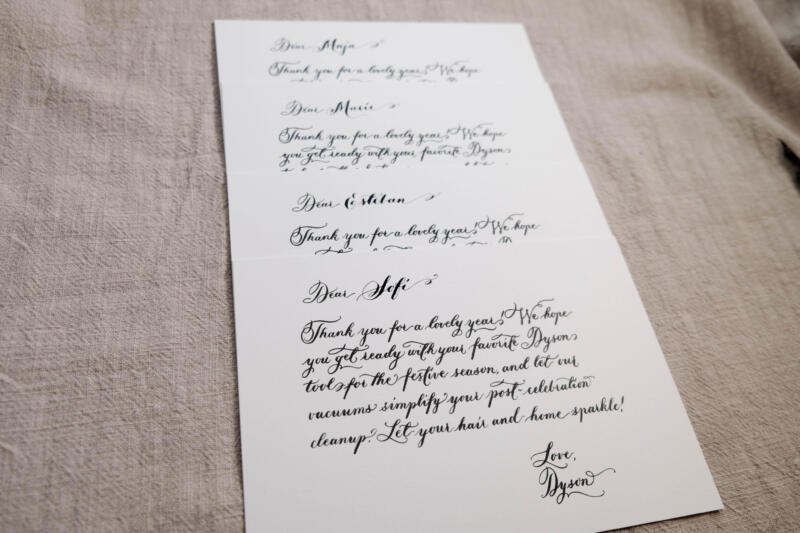 Dear Maja
Thank you for a lovely year! We hope
Dear Marie
Thank you for a lovely year! We hope
you get ready with your favorite Dyson
Dear Esteban
Thank you for a lovely year! We hope
Dear Sofi
Thank you for a lovely year! We hope
you get ready with your favorite Dyson
tools for the festive season, and let our
vacuums simplify your post-celebration
cleanup. Let your hair and home sparkle!
Love,
Dyson